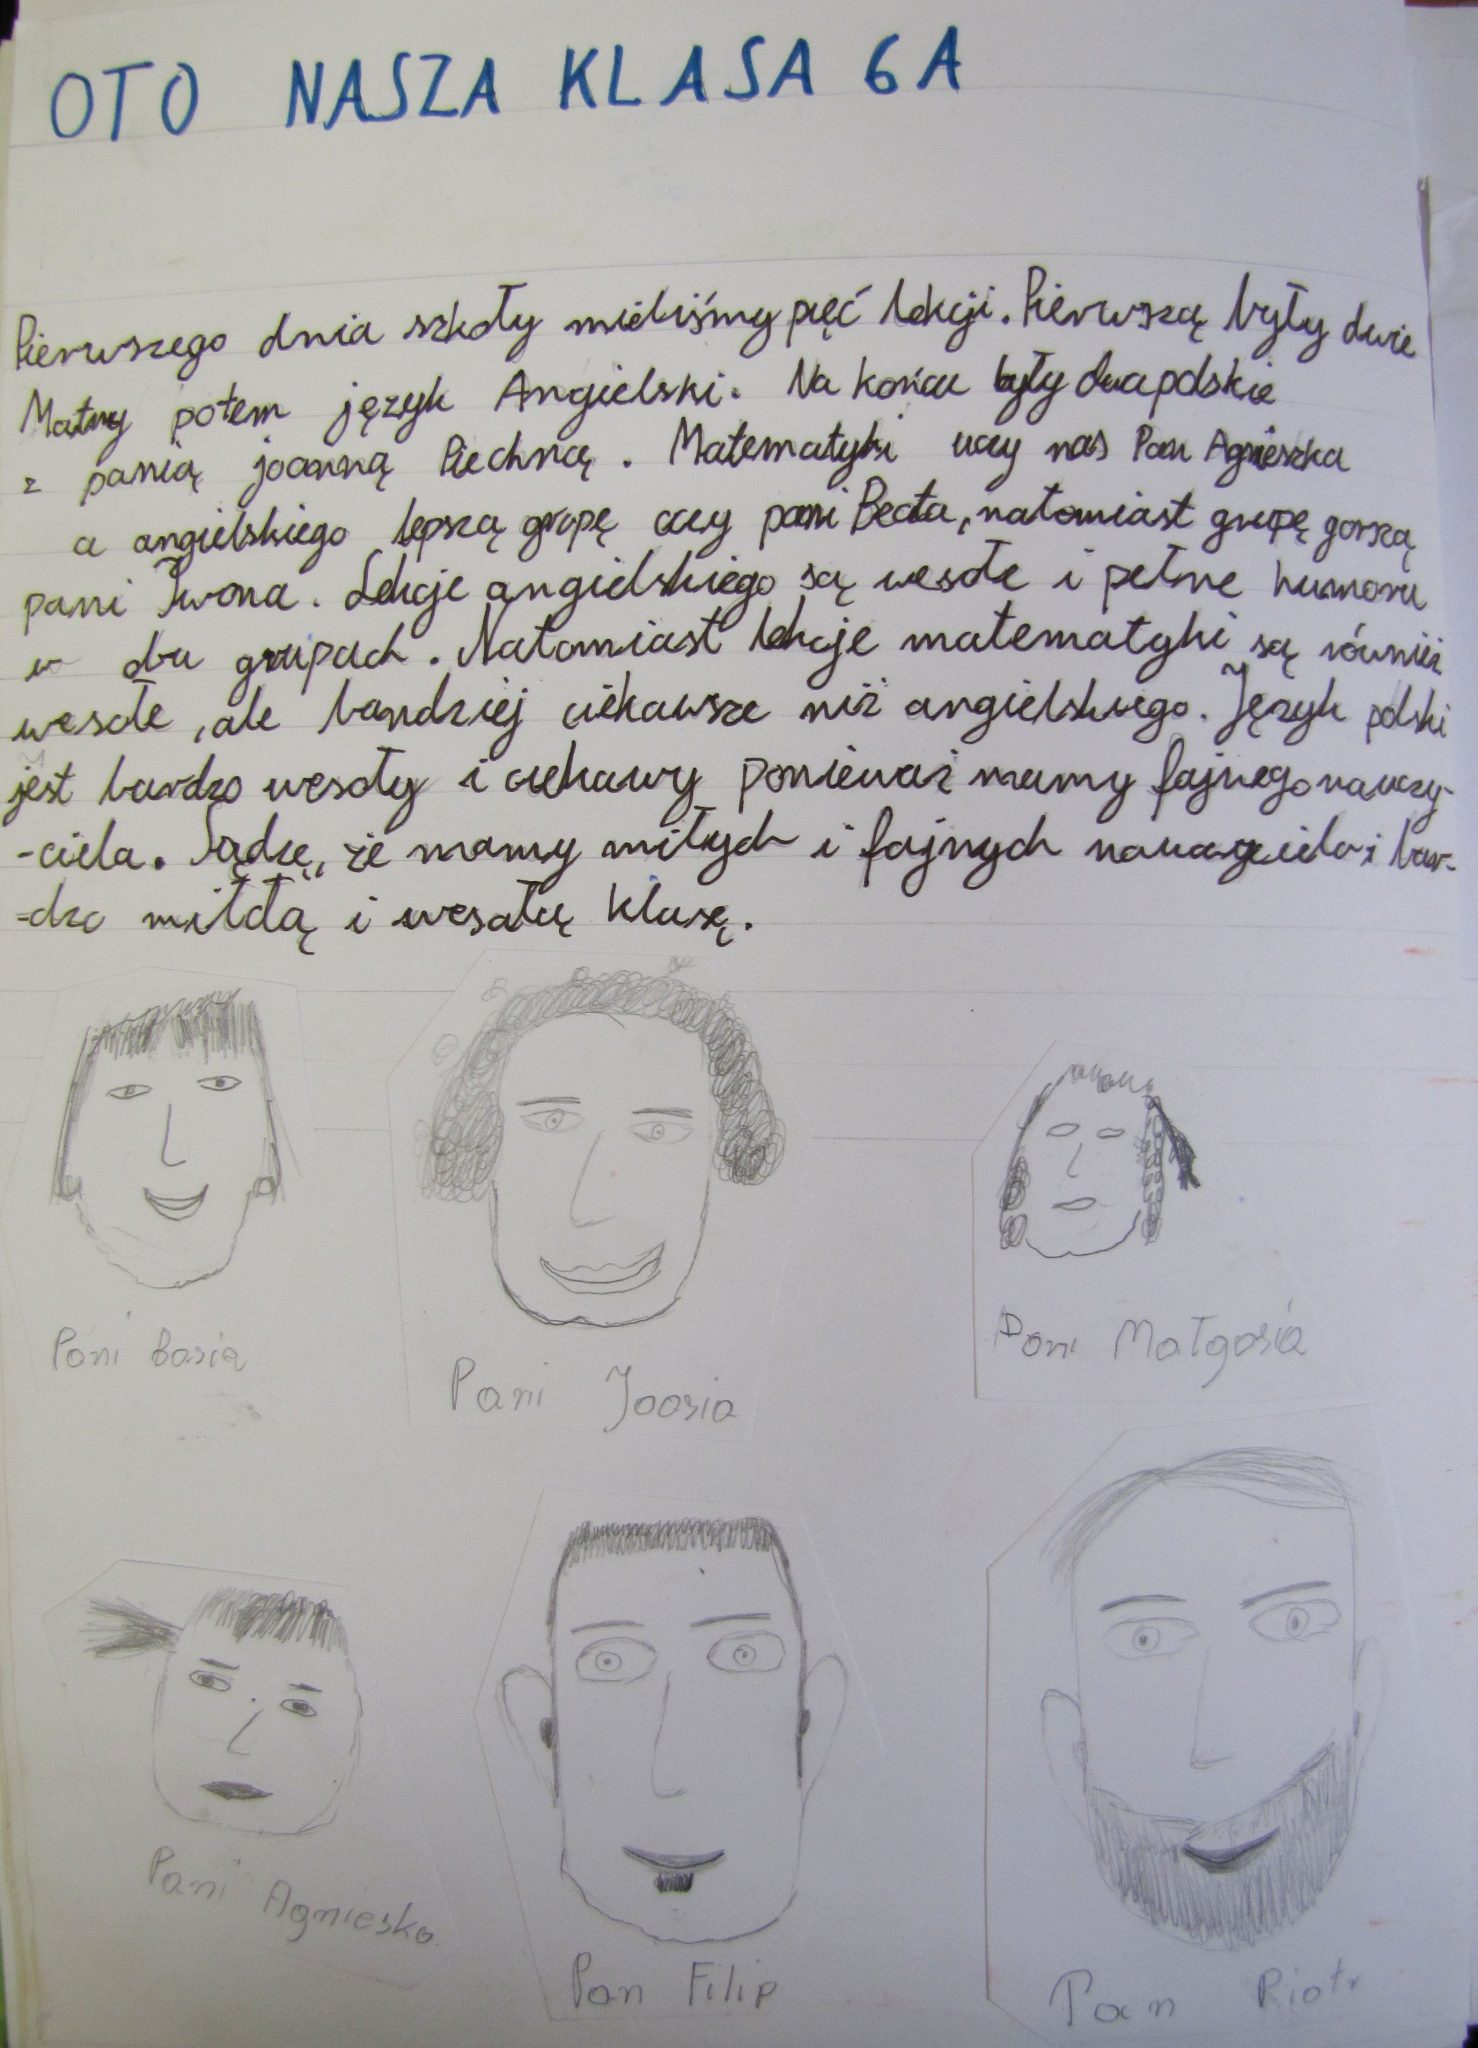 OTO NASZA KLASA 6A
Pierwszego dnia szkoły mieliśmy pięć lekcji. Pierwszą były dwie
Matmy potem język Angielski. Na końcu były dwa polskie
z panią joanną Piechną. Matematyki uczy nas Pani Agnieszka
a angielskiego lepszą grupę uczy pani Beata, natomiast grupę gorszą
pani Iwona. Lekcje angielskiego są wesołe i pełne humoru
w obu grupach. Natomiast lekcje matematyki są również
wesołe, ale bardziej ciekawsze niż angielskiego. Język polski
jest bardzo wesoły i ciekawy ponieważ mamy fajnego nauczy-
-ciela. Sądzę, że mamy miłych i fajnych i bar-
-dzo i wesołą klasę.
Pani Basia
Pani Joasia
Pani Małgosia
Pani Agnieska
Pan Filip
Pan Piotr